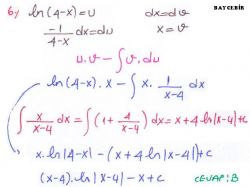 BAYCEBİR
6) ln(4-x)=u dx=dv
-1/(4-x) dx=du x=v
u.v - ∫v.du
ln(4-x).x - ∫x. 1/(x-4) dx
∫ x/(x-4) dx = ∫(1 + 4/(x-4))dx = x+4.ln|x-4|+c
x.ln|4-x| - (x+4.ln|x-4|)+c
(x-4).ln|x-4| - x+c CEVAP: B